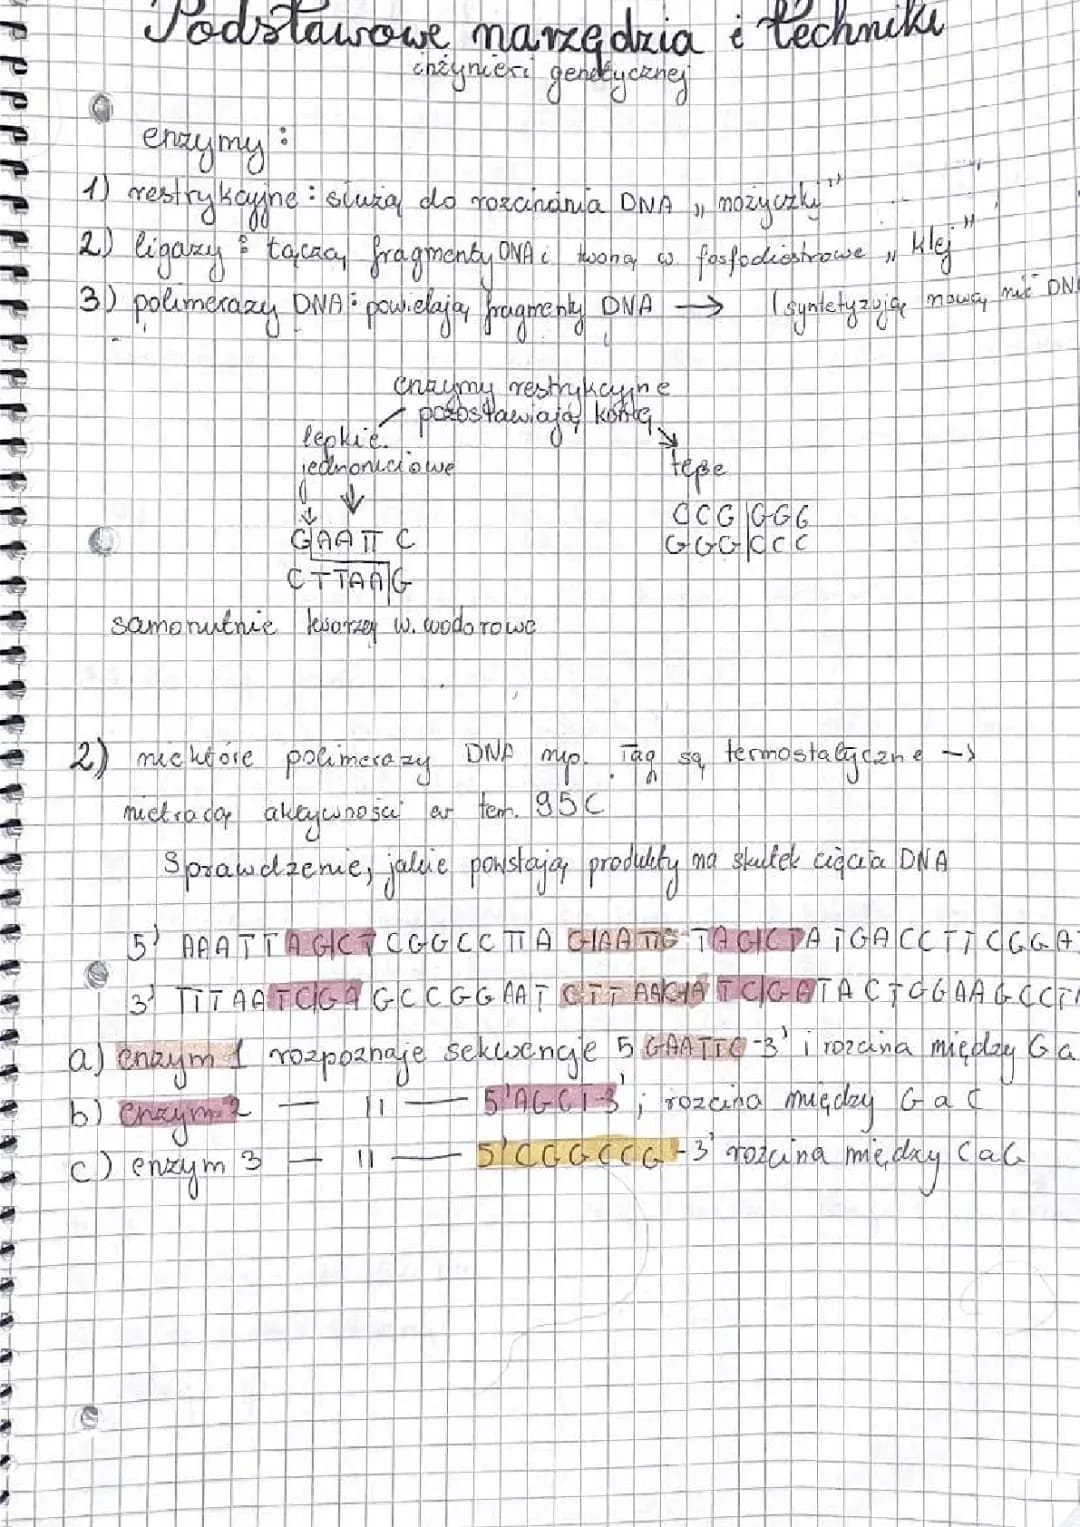 Podstawowe narzędzia i techniki
inżynieri genetycznej
enzymy:
1) restrykcyjne: służą do rozcinania DNA „nożyczki”
2) ligazy: łączą fragmenty DNA i tworzą w. fosfodiestrowe „klej”
3) polimerazy DNA: powielają fragmenty DNA → (syntetyzując nową nić DNA
enzymy restrykcyjne
pozostawiają końce
lepkie
jednoniciowe
tępe
CCG|GGG
GGG|CCC
G|AATT C
CTTAA|G
samorutnie tworzą w. wodorowe
2) niektóre polimerazy DNA np. Taq są termostatyczne ->
nietracą aktywności w tem. 95C
Sprawdzenie, jakie powstają produkty na skutek cięcia DNA
5' AAATTAG|CTCGGCCTTA G|AATTG TAG|CTATGACCTTCGGA
3' TTTAATC|GAGCCGGAAT CTTAA TC|GATACTGGAAGCCT
a) enzym 1 rozpoznaje sekwencje 5 GAATTC-3' i rozcina między G a
b) enzym 2 — 11 — 5'AGCT-3', rozcina między G a C
c) enzym 3 — 11 — 5'CGGCCG-3' rozcina między C a G